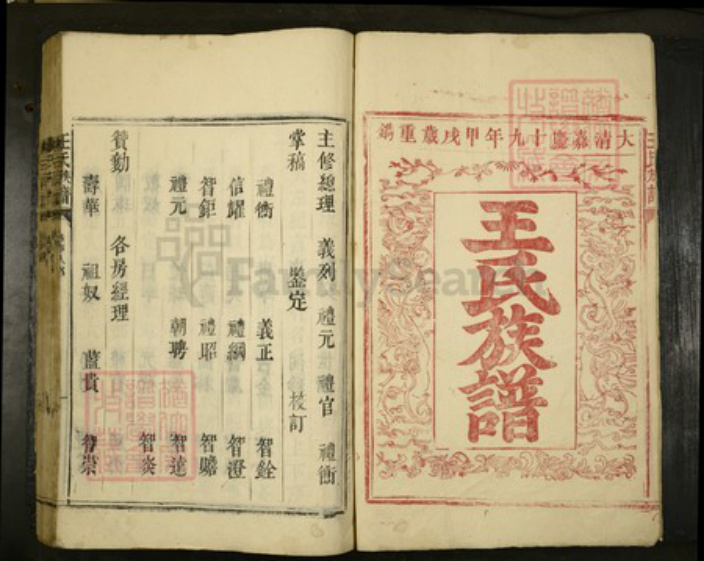 大清嘉慶十九年甲戌歲重鐫
王氏族譜
主修總理 義列 禮元 禮官 禮衡
掌稿 鑒定 校訂
禮衡 義正 智銓
信耀 禮綱 智澄
智鉅 禮昭 智贍
禮元 朝聘 智達
智炎
贊勷 各房經理
壽華 祖奴 藍貴 智崇
王氏族譜
FamilySearch